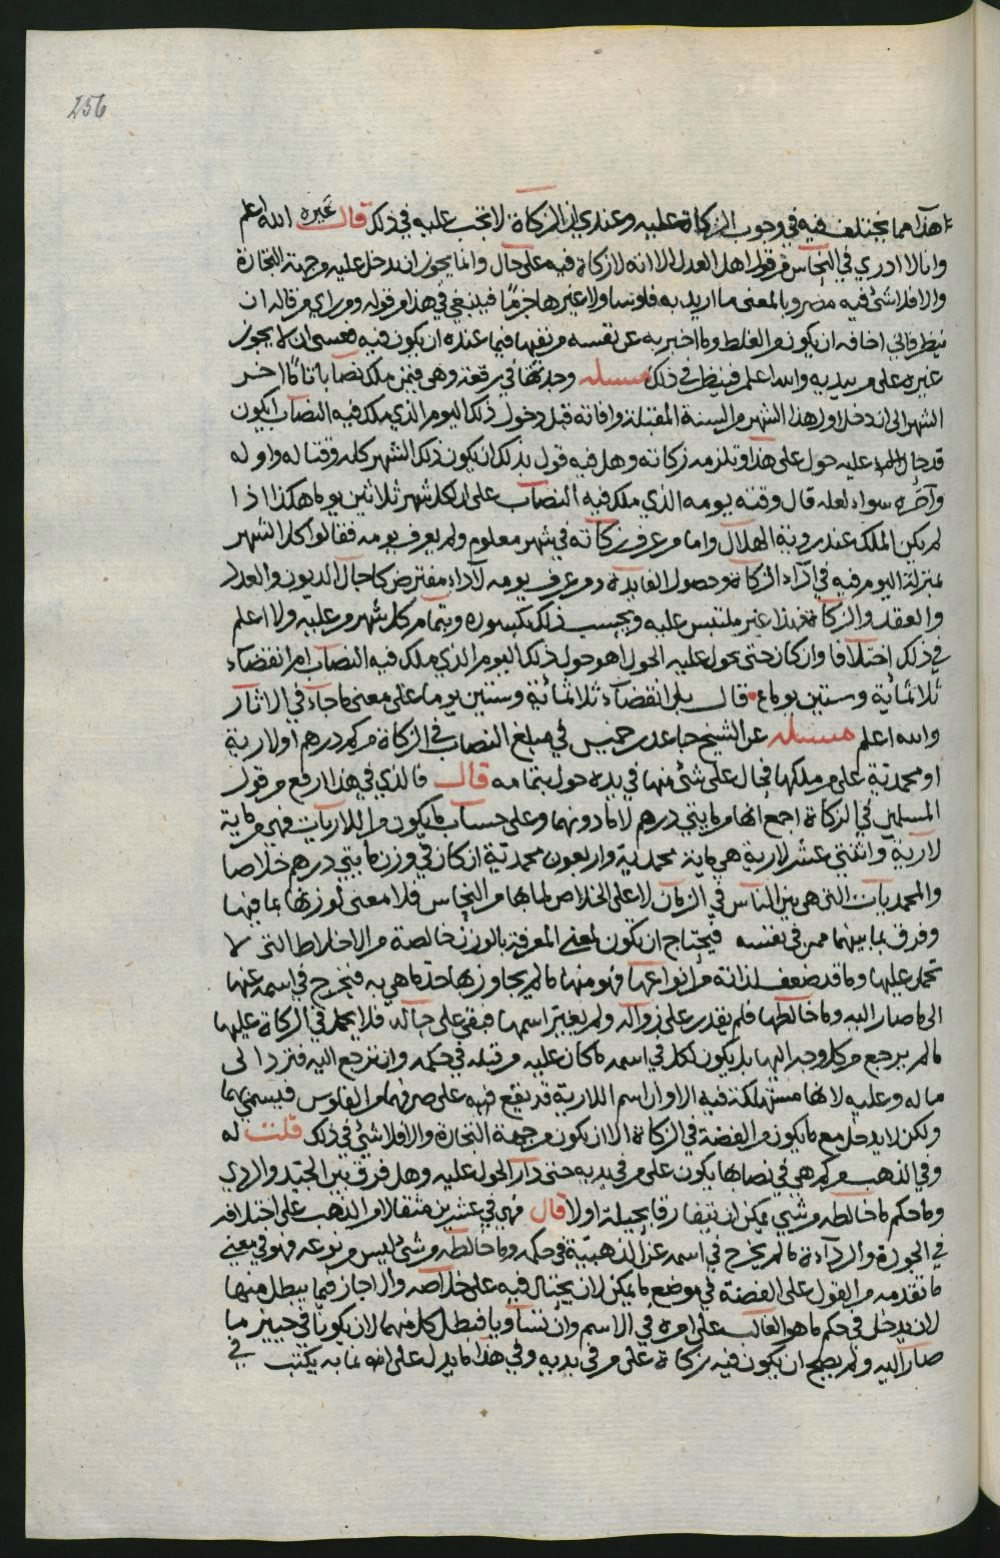 256
هذا مما يختلف فيه في وجوب الزكاة عليه وعندي ان الزكاة لا تجب عليه في ذلك قال غيره الله اعلم
وانا لا ادري في النحاس من قول اهل العدل الا انه لا زكاة فيه على حال وانما يجوز ان يدخل عليه وجهة التجارة
والا فلا شئ فيه مضروبا لمعنى ما اريد به فلوسا ولا غيرها جزما فينبغي في هذا من قوله ومن راي من قاله ان
ينظر فاني اخافه ان يكون من الغلط وما اخبر به عن نفسه من نفيها فيما عنده ان يكون فيه فعسى ان لا يجوز
غيره على من بيديه والله اعلم فينظر في ذلك مسئله وجدتها في رقعة وهي فيمن ملك نصابا تاما اخر
الشهر الى ان دخل اول هذا الشهر من السنة المقبلة وافاته قبل دخول ذلك اليوم الذي ملك فيه النصاب ايكون
قد حال عليه حول على هذا وتلزمه زكاته وهل فيه قول بذلك ان يكون ذلك الشهر كله وقتا له واوله
وآخره سواء لعله قال وقته يومه الذي ملك فيه النصاب على ان لكل شهر ثلاثين يوما هكذا اذا
لم يكن الملك عند روية الهلال واما من عرف زكاته في شهر معلوم ولم يعرف يومه فقالوا كل الشهر
بمنزلة اليوم فيه في آداء الزكاة وحصول الفايدة ومن عرف يومه لآداء مفترض كآجال الديون والعدد
والعقد والزكاة فهذا غير ملتبس عليه ويحسب ذلك بكسوره وبتمام كل شهر من عليه ولا اعلم
في ذلك اختلافا وان كان حتى يحول عليه الحول اهو حول ذلك اليوم الذي ملك فيه النصاب ام انقضاء
ثلاثمائة وستين يوما قال بل انقضاء ثلاثمائة وستين يوما على معنى ما جاء في الاثار
والله اعلم مسئله عن الشيخ جاعد بن خميس في مبلغ النصاب في الزكاة من كم درهم او لارية
او محمدية على من ملكها فحال على شئ منها في يده حول بتمامه قال فالذي في هذا رفع من قول
المسلمين في الزكاة اجمع انها من مايتي درهم لا ما دونهما وعلى حساب ما يكون من اللاريات فهي من ماية
لارية واثنتي عشر لارية هي ماية محمدية واربعون محمدية ان كان في وزن مايتي درهم خلاصا
والمحمديات التي هي بين الناس في الزمان لا على الخلاص لما بها من النحاس فلا معنى لوزنها بما فيها
وفرق ما بينهما ممن في نفسه فيحتاج ان يكون لمعنى المعرفة بالوزن خالصة من الاخلاط التي لا
تحمل عليها وما قد ضعف لذاته من انواعها فهو منها ما لم يجاوز بها حد ما هي به فتخرج في اسمه عنها
الى ما صار اليه وما خالطها فلم يقدر على زواله ولم يغير اسمها فبقي على حاله فلا يحمل في الزكاة عليها
ما لم يرجع من كل وجه اليها بل يكون لكل في اسمه ما كان عليه من قبله في حكمه وان ترجع اليه فتزدا لى
ما له وعليه لانها مستهلكة فيه الا وان اسم اللارية قد يقع فيه على صرفها من الفلوس فيسمى بها
ولكن لا يدخل مع ما يكون من الفضة في الزكاة الا ان يكون من جهة التجارة والا فلا شئ في ذلك قلت له
وفي الذهب من كم هي في نصابها يكون على من في يديه حتى دار الحول عليه وهل فرق بين الجيد والردي
وما حكم ما خالطه من شئ يمكن ان يتفارقا بحيلة اولا قال فهي في عشرين مثقالا من الذهب على اختلافه
في الجودة والرداءة ما لم يخرج في اسمه عن الذهبية في حكمه وما خالطه من شئ ليس من نوعه فهو في معنى
ما تقدمه من القول على الفضة في موضع ما يمكن لان يحتال فيه على خلاصه وان اجاز فيما يبطل منها
لان يدخل في حكم ما هو الغالب على امره في الاسم وان تساويا فبطل كل منهما لان يكونا في حيز ما
صار اليه ولم يصح ان يكون فيه زكاة على من في يديه وفي هذا ما يدل على انه نما به يكتب في